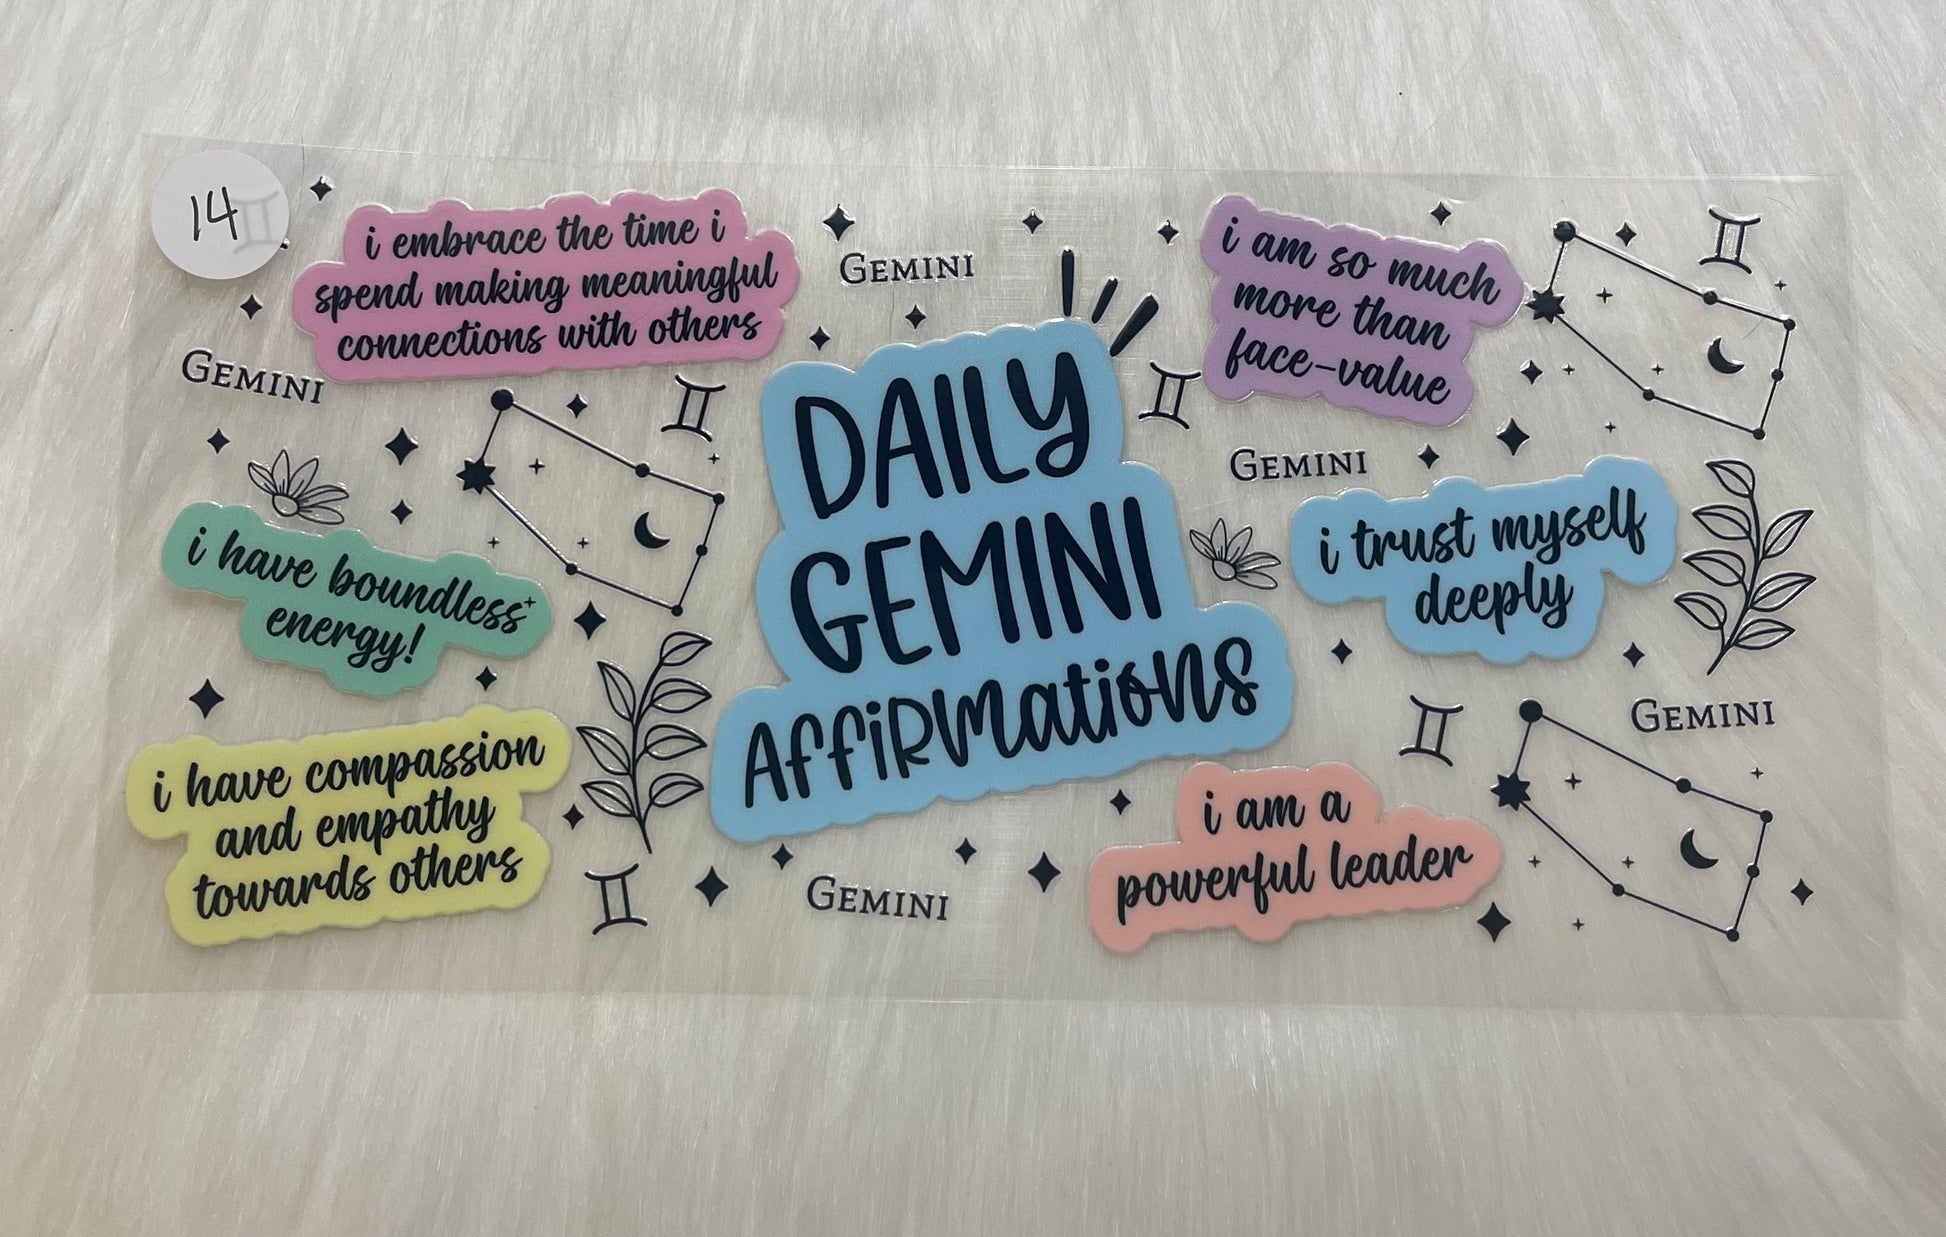 14
i embrace the time i
spend making meaningful
connections with others
GEMINI
i am so much
more than
face-value
GEMINI
DAILY
GEMINI
AFFIRMATIONS
GEMINI
i have boundless
energy!
i trust myself
deeply
GEMINI
i have compassion
and empathy
towards others
i am a
powerful leader
GEMINI